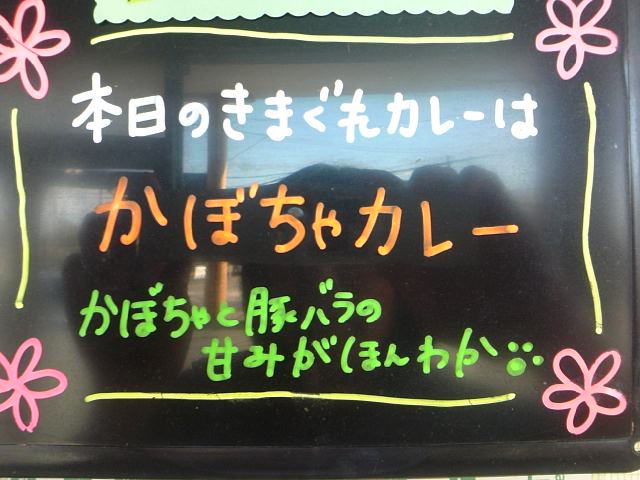 本日のきまぐれカレーは
かぼちゃカレー
かぼちゃと豚バラの
甘みがほんわか